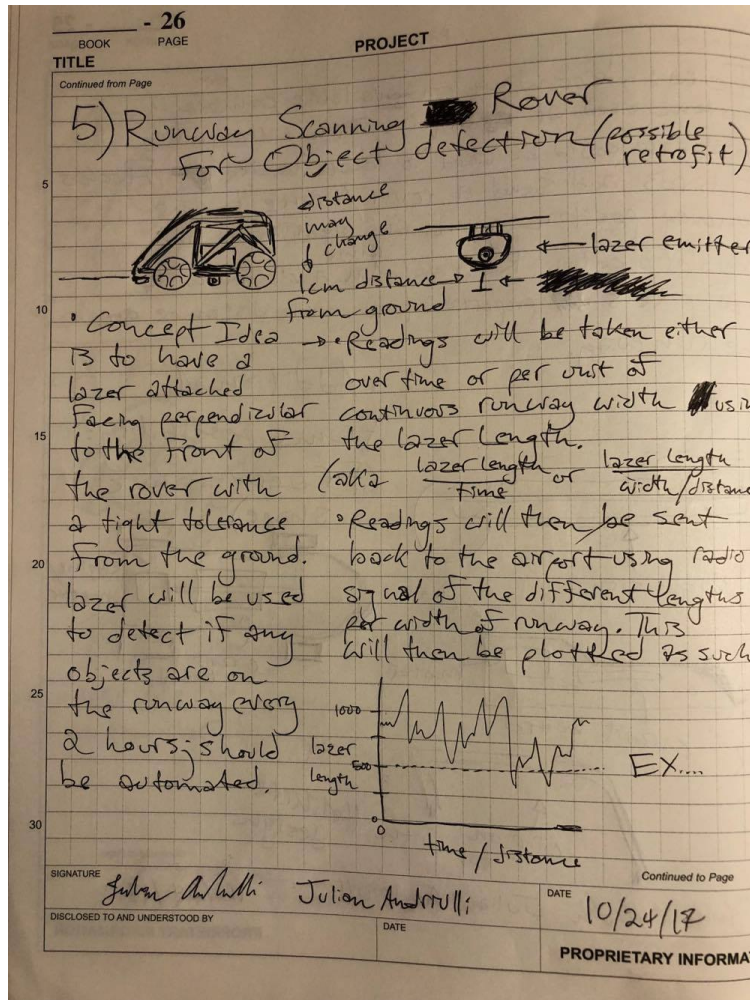 - 26
BOOK PAGE PROJECT
TITLE
Continued from Page
5) Runway Scanning Rover
For Object detection (possible
retrofit)
distance
may
change
lazer emitter
1cm distance
from ground
• Concept Idea
is to have a
lazer attached
Facing perpendicular
to the Front of
the rover with
a tight tolerance
From the ground.
lazer will be used
to detect if any
objects are on
the runway every
2 hours; should
be automated.
• Readings will be taken either
over time or per unit of
continuous runway width usin
the lazer Length.
(aka lazer length or lazer length
time width/distanc
• Readings will then be sent
back to the airport using radio
signal of the different lengths
per width of runway. This
will then be plotted as such
1000
lazer
length
500
0
EX....
time / distance
5
10
15
20
25
30
Continued to Page
SIGNATURE
Julian Andriulli
DATE
10/24/17
DISCLOSED TO AND UNDERSTOOD BY
DATE
PROPRIETARY INFORMA